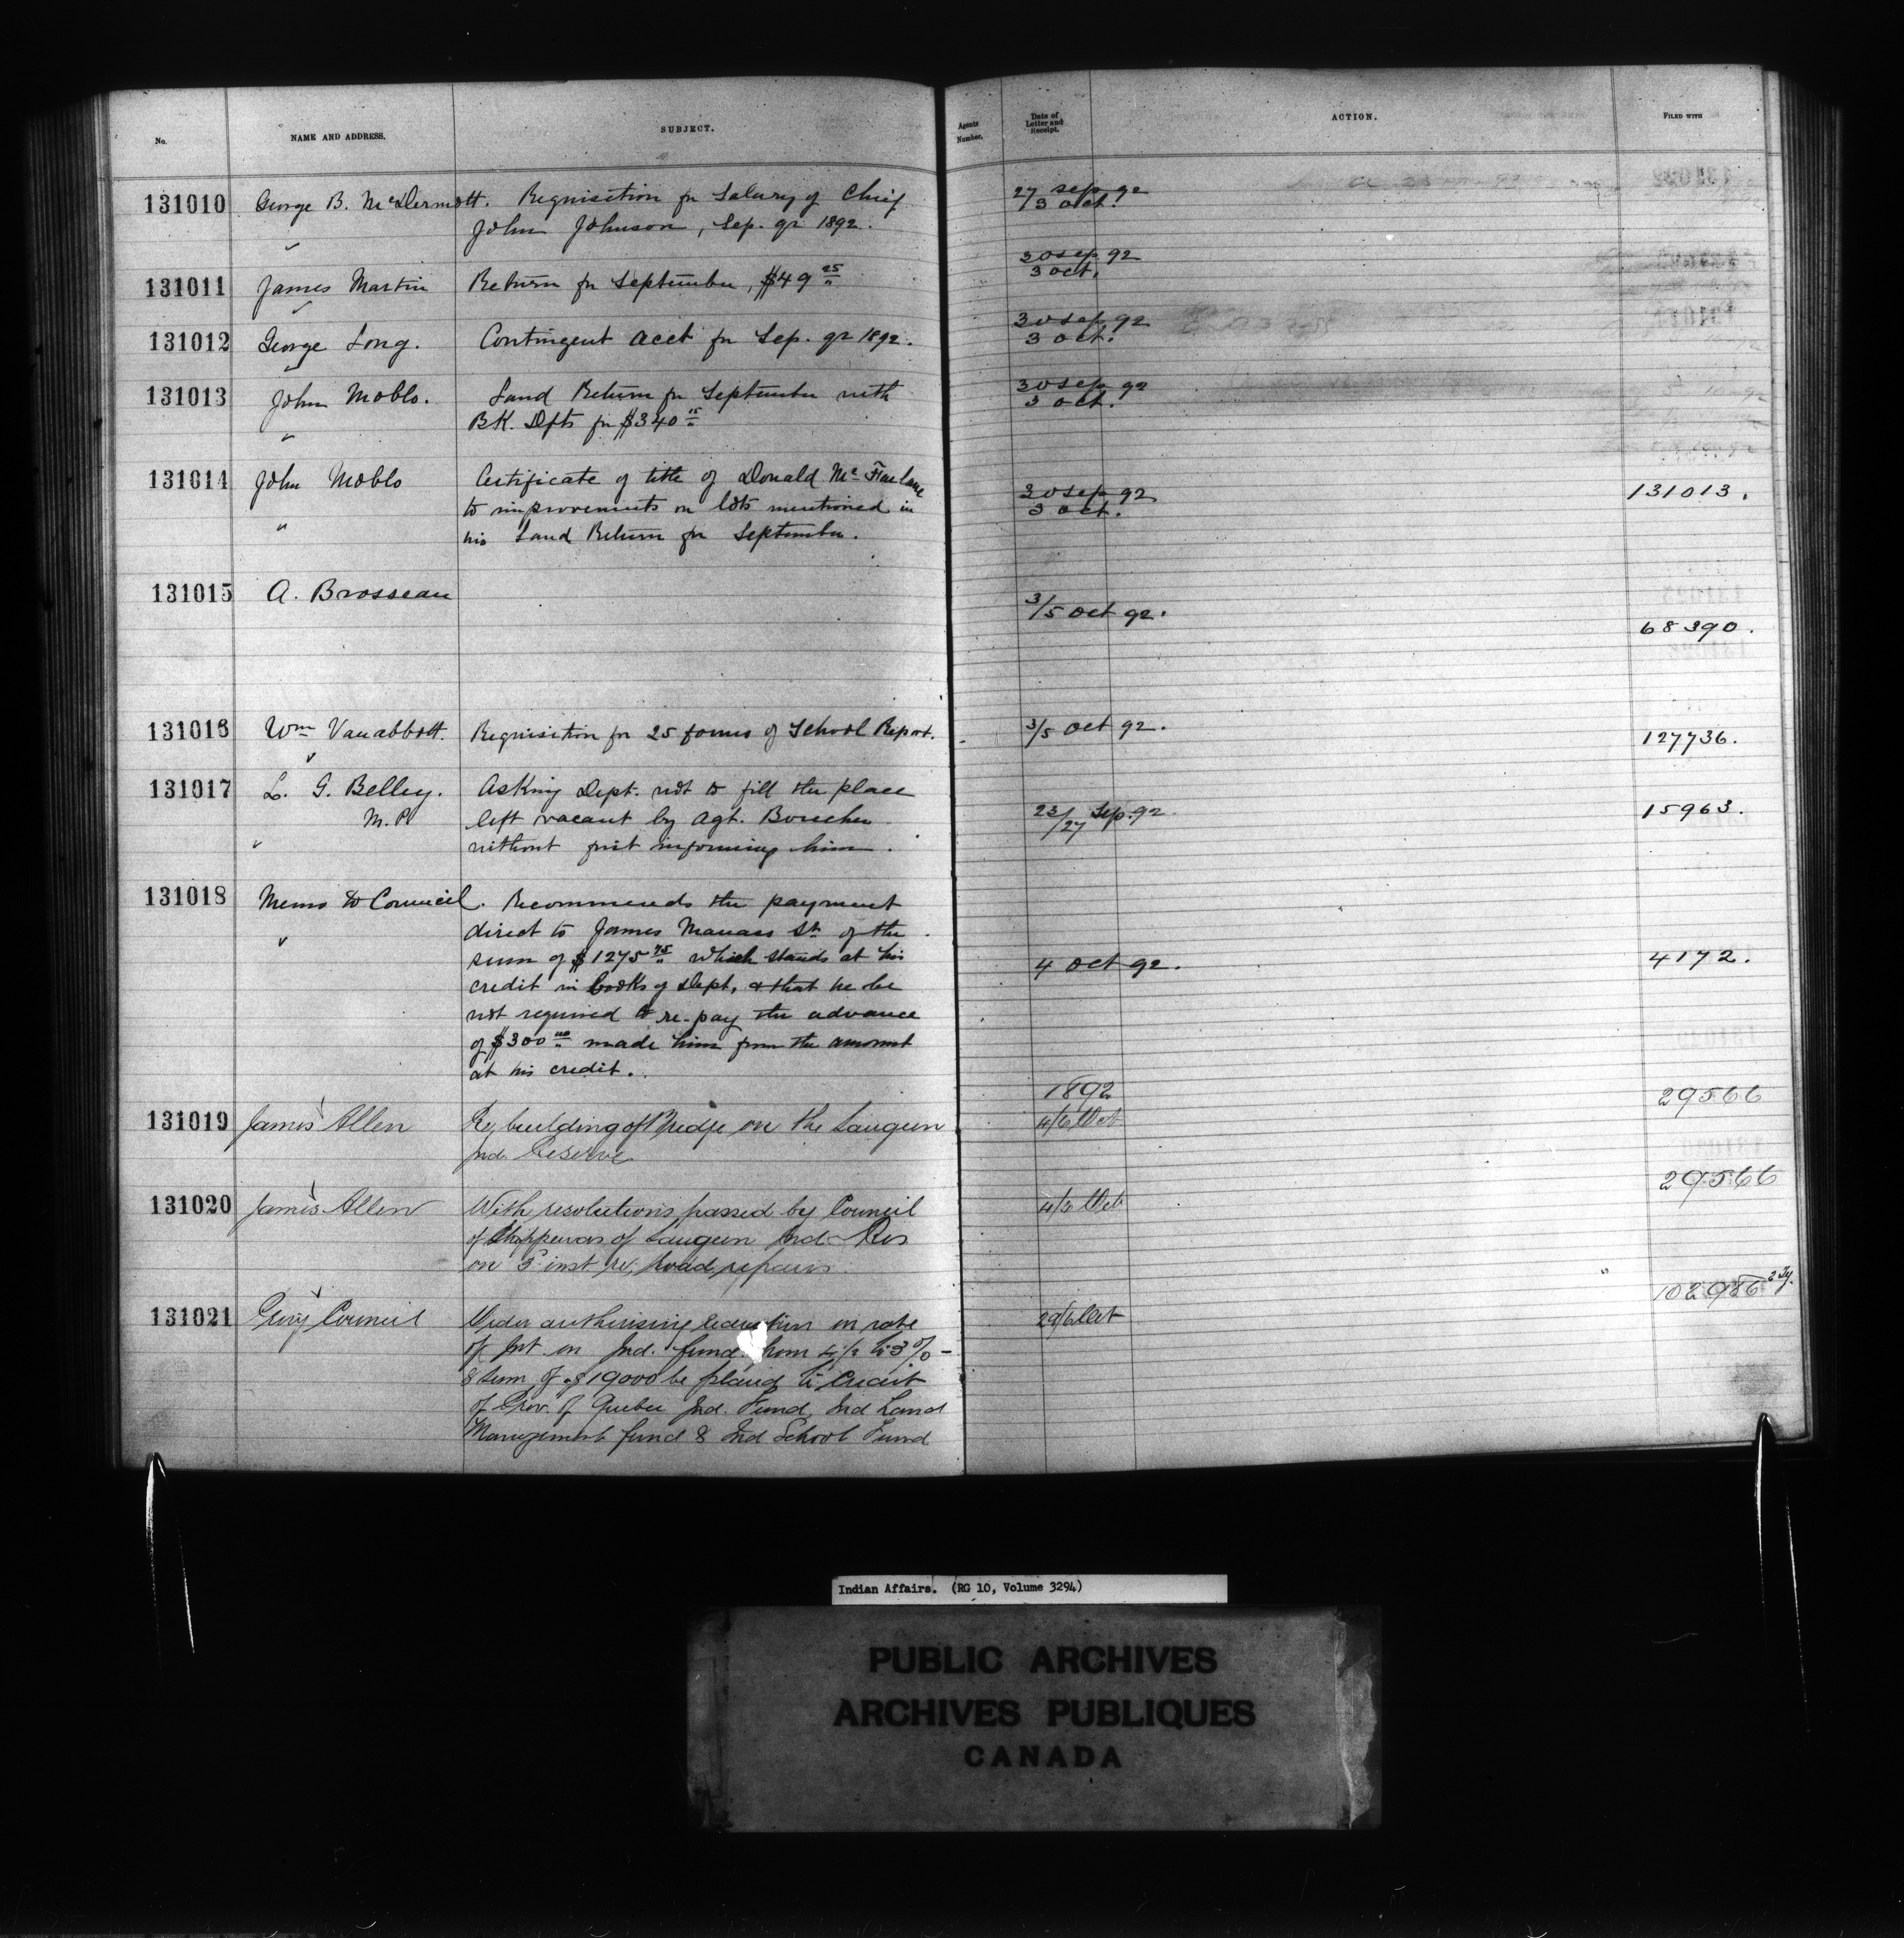 No. NAME AND ADDRESS. SUBJECT. Agents Number. Date of Letter and Receipt. ACTION. FILED WITH
131010 George B. McDermott. Requisition for Salary of Chief 27 sep 92
John Johnson, Sep. qr 1892. 3 oct.
131011 James Martin Return for September, $49 25 30 sep 92
3 oct.
131012 George Long. Contingent acct for Sep. qr 1892. 30 sep 92
3 oct.
131013 John Moblo. Land Return for September with 30 sep 92
BK. Dpts for $340 15 3 oct.
131014 John Moblo Certificate of title of Donald Mc Farlane 30 sep 92 131013.
to improvements on lots mentioned in 3 oct.
" his Land Return for September.
131015 A. Brosseau 3/5 oct 92. 68390.
131016 Wm Vanabbott. Requisition for 25 forms of School Report. 3/5 oct 92. 127736.
131017 L. G. Belley. Asking Dept. not to fill the place
M.P. left vacant by Agt. Boucher 23/27 Sep. 92 15963.
without first informing him.
131018 Memo to Council. Recommends the payment
direct to James Manass Sr. of the
sum of $1275 75 which stands at his 4 oct 92. 4172.
credit in books of Dept, & that he be
not required to re-pay the advance
of $300 00 made him from the amount
at his credit.
1892
131019 James Allen Re, building of Bridge on the Saugeen 4/6 Oct 29566
Ind. Reserve
131020 James Allen With resolutions passed by Council 4/5 Oct 29566
of Chippewas of Saugeen Ind. Res
on 3 inst re, road repairs.
131021 Privy Council Order authorising reduction in rate 29/6 Oct
of Int on Ind. fund from 4½ to 3%
& sum of $19000 be placed to Credit
of Prov. of Quebec Ind. Fund, Ind Land
Management fund & Ind School Fund
Indian Affairs. (RG 10, Volume 3294)
PUBLIC ARCHIVES
ARCHIVES PUBLIQUES
CANADA